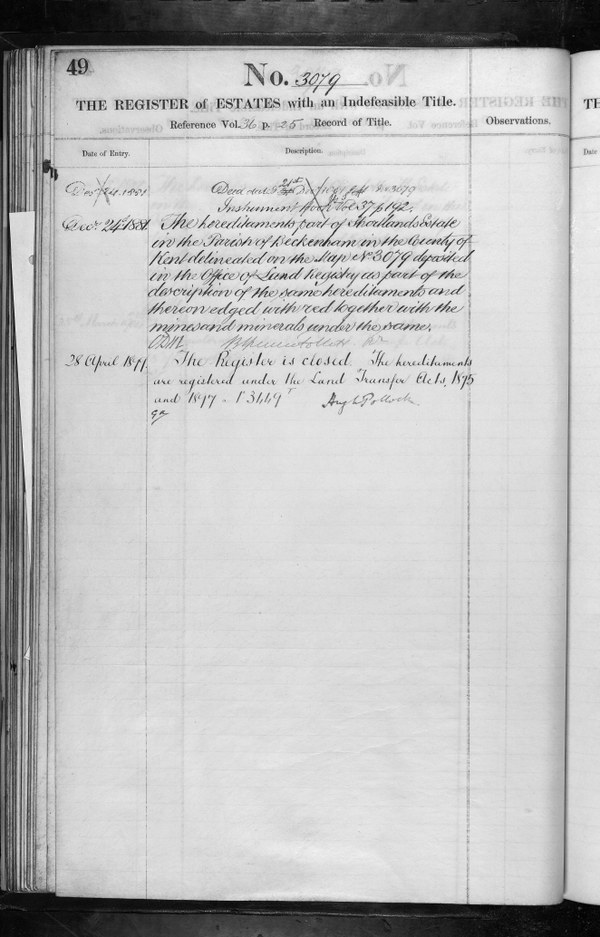 49
No. 3079
THE REGISTER of ESTATES with an Indefeasible Title.
Reference Vol. 36 p. 25 Record of Title.
Observations.
Date of Entry.
Description.
Decr 24. 1881
Deed dated 21st Decr 1881 No 3079
Instrument Book Vol 37 p 192.
Decr. 24. 1881.
The hereditaments part of Shortlands Estate
in the Parish of Beckenham in the County of
Kent delineated on the Map No 3079 deposited
in the Office of Land Registry as part of the
description of the same hereditaments and
thereon edged with red together with the
mines and minerals under the same.
28 April 1899.
The Register is closed. The hereditaments
are registered under the Land Transfer Acts, 1875
and 1897 - T 3449
Hugh Pollock.
TH
Da